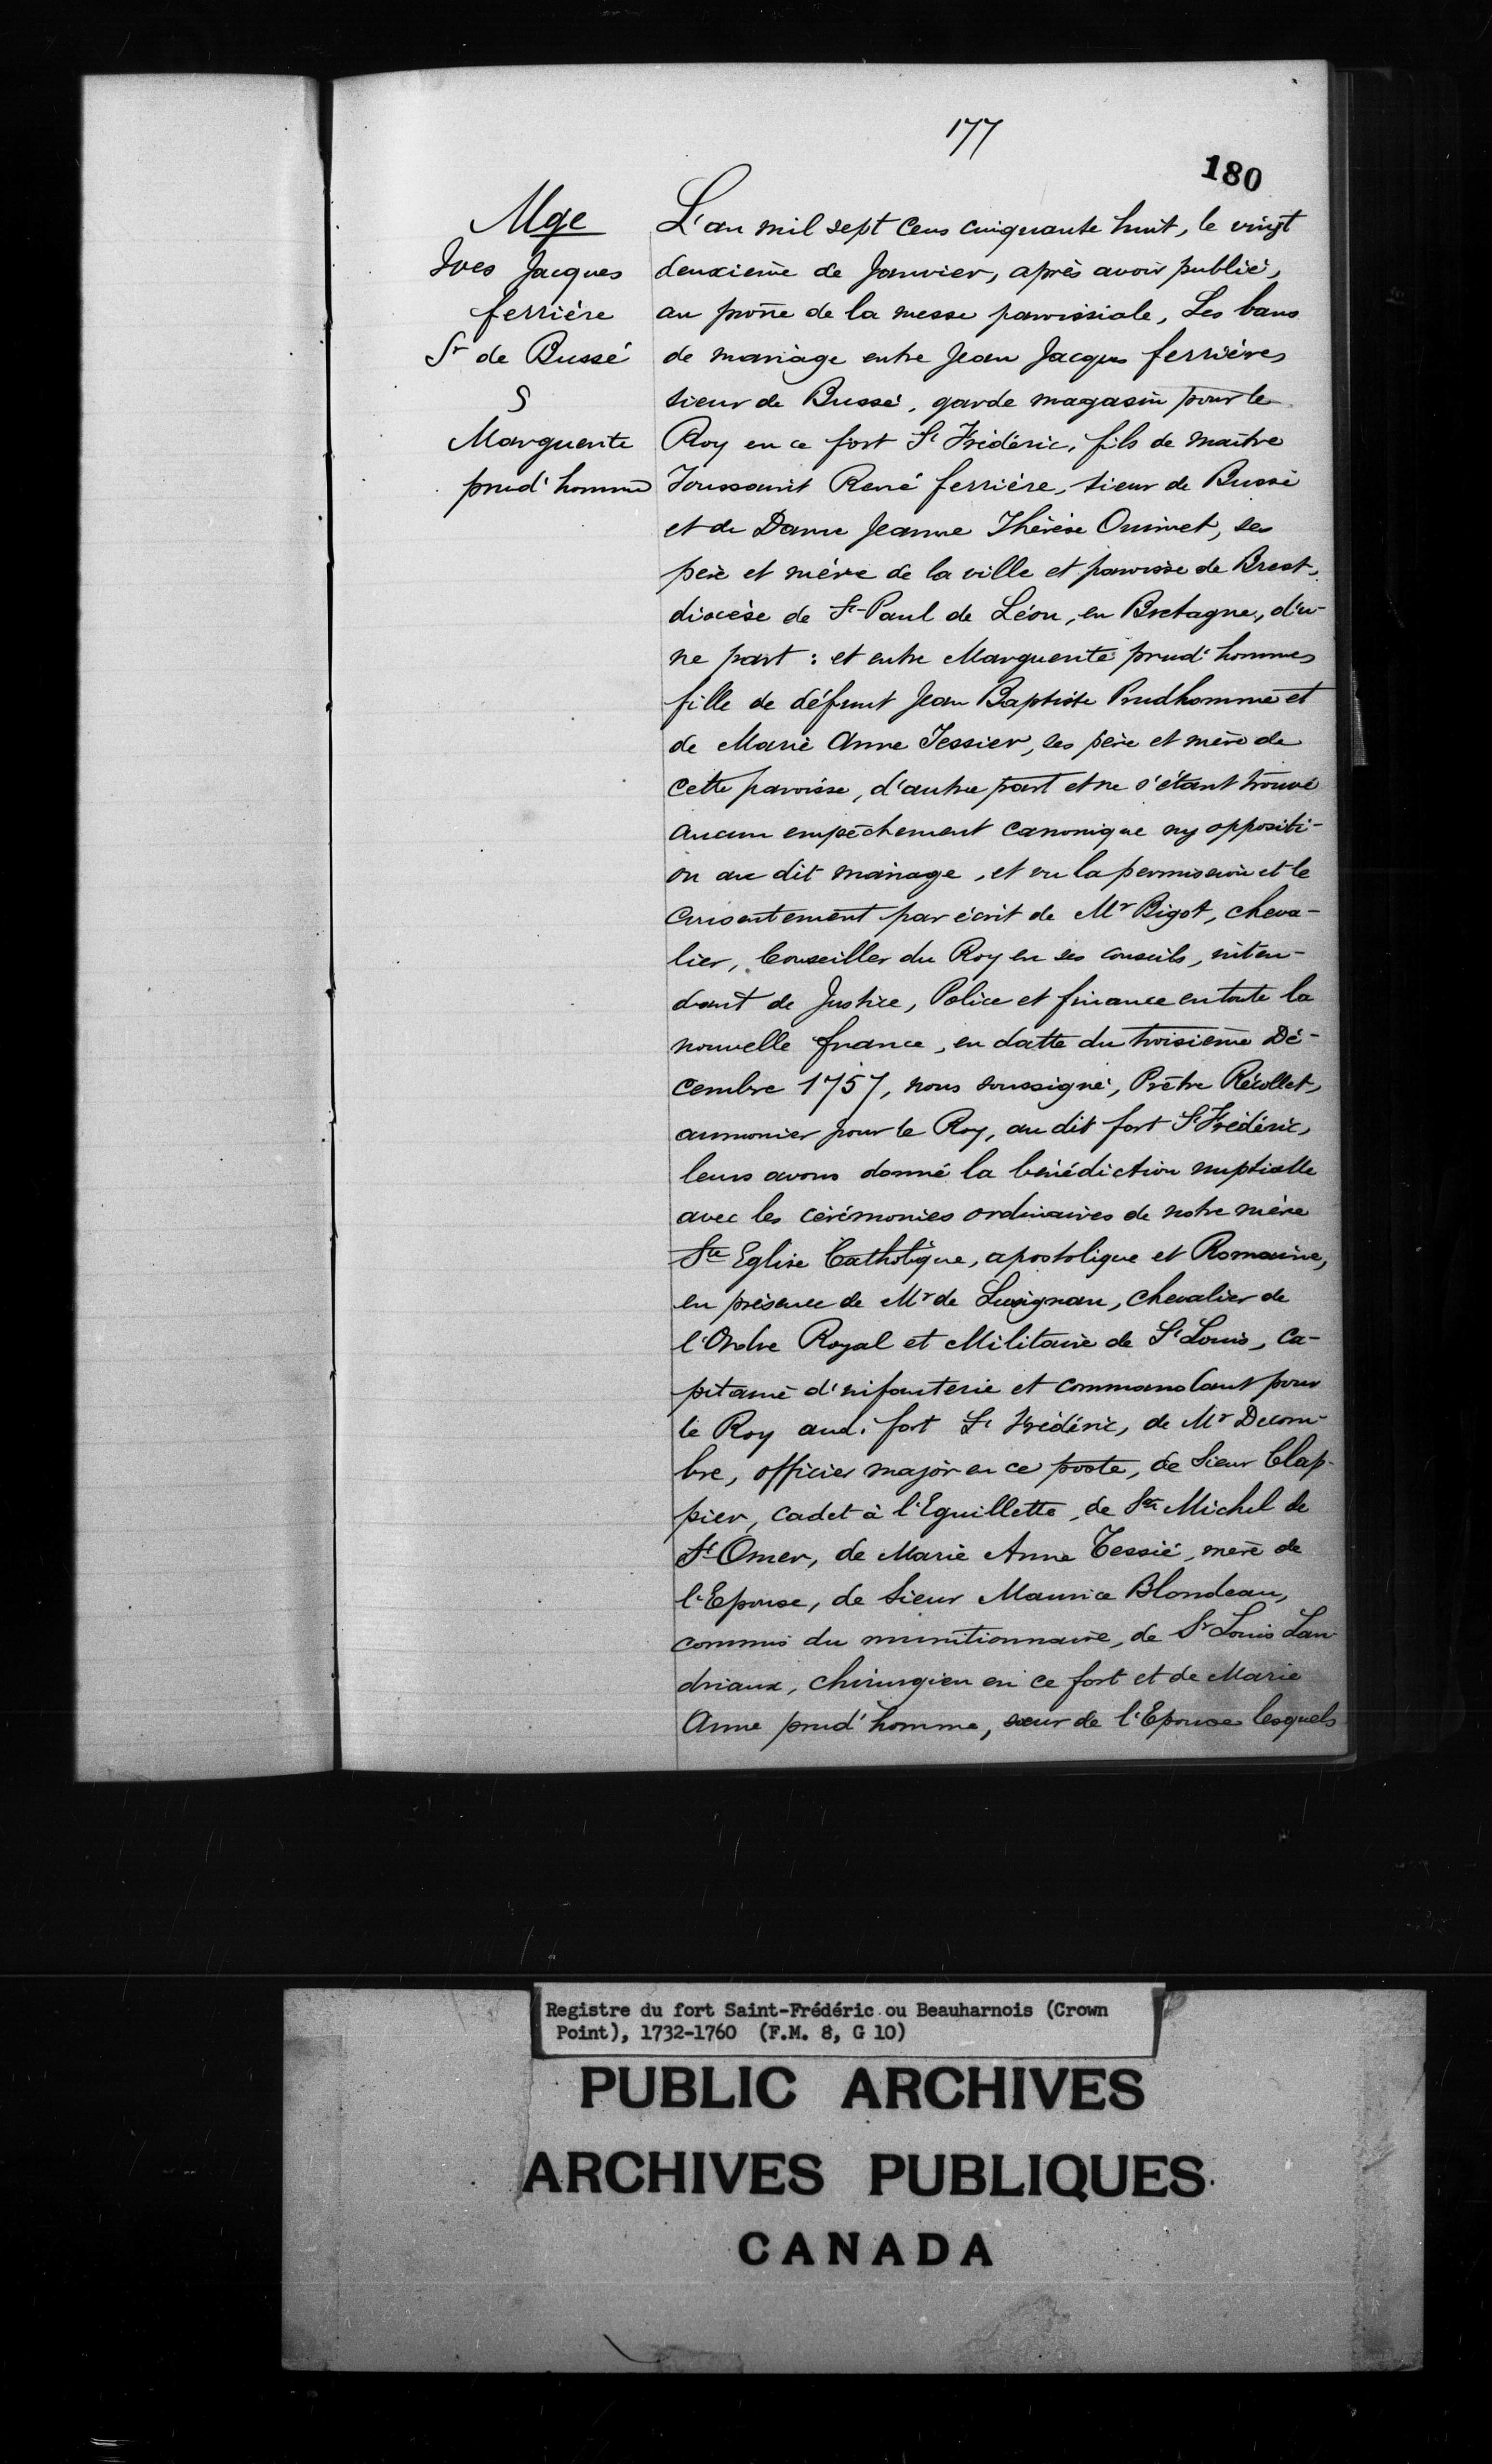 177
180
Mge
Ives Jacques
ferrière
Sr de Bussé
S
Marguerite
prud'homme
L'an mil sept cens cinquante huit, le vingt
deuxième de Janvier, après avoir publié,
au prône de la messe paroissiale, Les bans
de mariage entre Jean Jacques ferrières
sieur de Bussé, garde magasin pour le
Roy en ce fort St Frédéric, fils de maître
Toussaint René ferrière, sieur de Bussé
et de Dame Jeanne Thérèse Ouimet, ses
père et mère de la ville et paroisse de Brest,
diocèse de St-Paul de Léon, en Bretagne, d'u-
ne part : et entre Marguerite prud'hommes
fille de défunt Jean Baptiste Prudhomme et
de Marie Anne Tessier, ses père et mère de
cette paroisse, d'autre part et ne s'étant trouvé
aucun empêchement canonique ny oppositi-
on au dit mariage, et vu la permission et le
consentement par écrit de Mr Bigot, cheva-
lier, Conseiller du Roy en ses conseils, inten-
dant de Justice, Police et finance en toute la
nouvelle france, en datte du troisième Dé-
cembre 1757, nous soussigné, Prêtre Récollet,
aumonier pour le Roy, au dit fort St Frédéric,
leurs avons donné la bénédiction nuptialle
avec les cérémonies ordinaires de notre mère
Ste Eglise Catholique, apostolique et Romaine,
en présence de Mr de Lusignan, chevalier de
l'Ordre Royal et Militaire de St Louis, ca-
pitaine d'infanterie et commandant pour
le Roy aud. fort St Frédéric, de Mr Decom-
bre, officier major en ce poste, de Sieur Clap-
pier, cadet à l'Eguillette, de Sr Michel de
St-Omer, de Marie Anne Tessié, mère de
l'Epouse, de Sieur Maurice Blondeau,
commis du munitionnaire, de Sr Louis Lan-
driaux, chirurgien en ce fort et de Marie
Anne prud'homme, sœur de l'Epouse lesquels
Registre du fort Saint-Frédéric ou Beauharnois (Crown
Point), 1732-1760 (F.M. 8, G 10)
PUBLIC ARCHIVES
ARCHIVES PUBLIQUES
CANADA